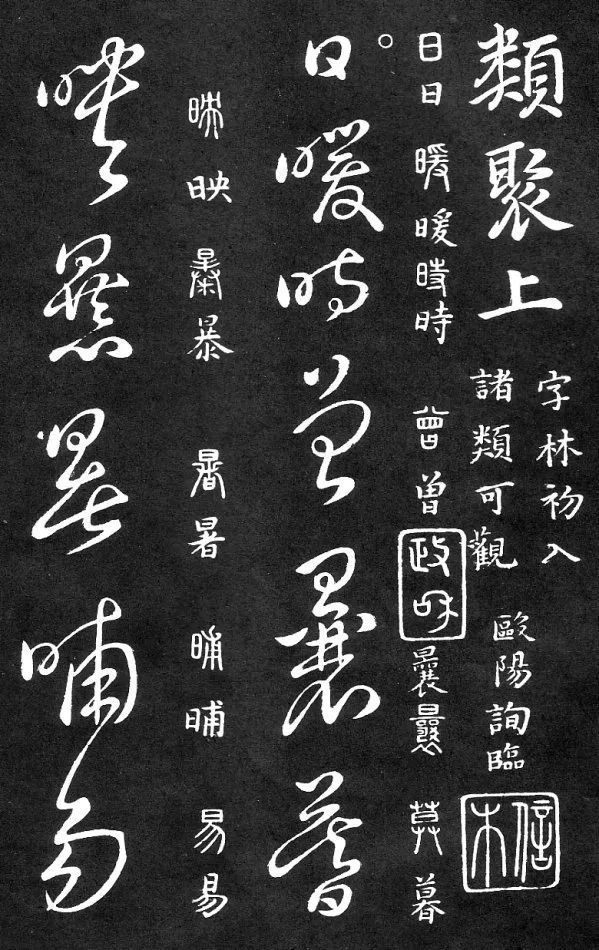 類聚上
字林初入
諸類可觀
歐陽詢臨
信本
日日 暖暖時時 曾曾
政和
莫暮
日暖時曾曩暮
映 暴暴 暑暑 晡晡 易易
映暴暑晡易